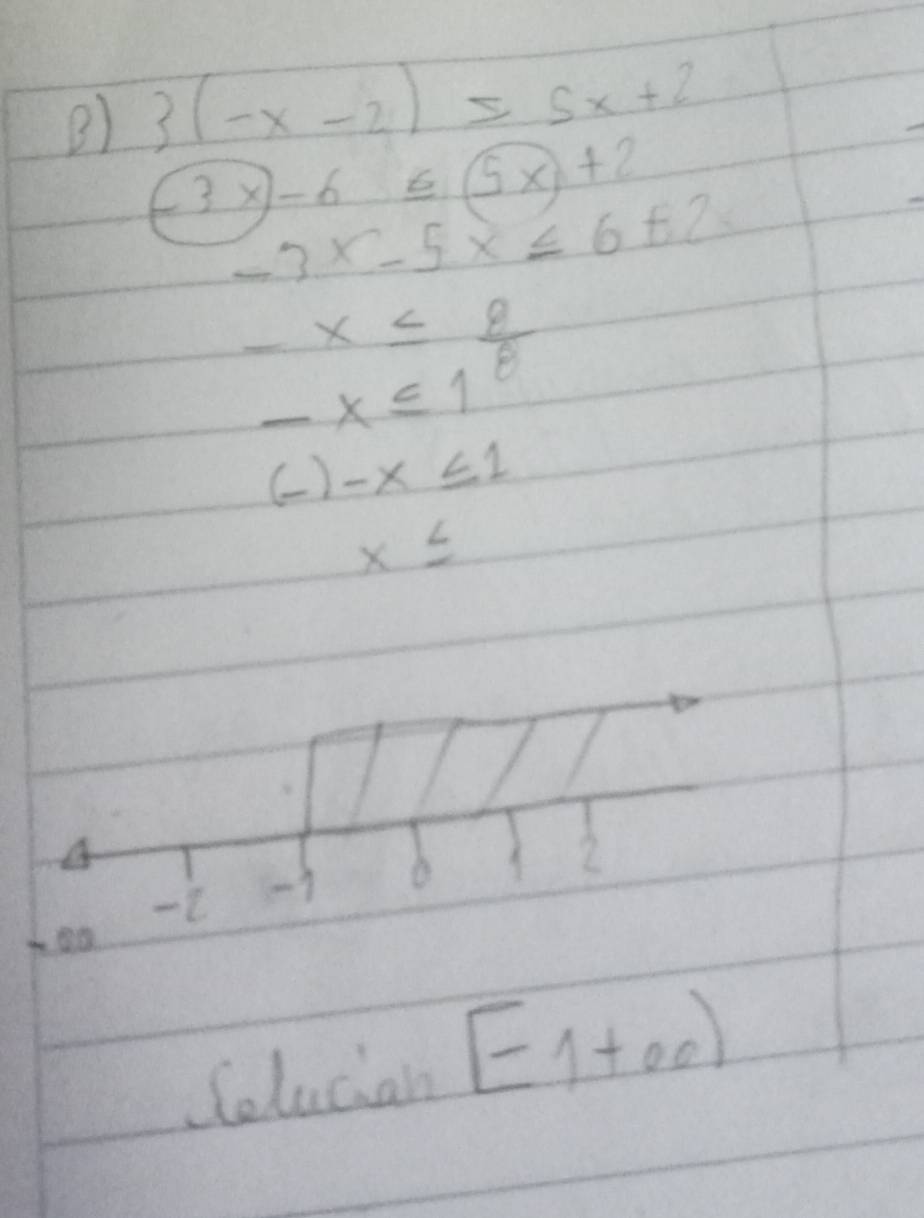 B) 3(-x -2) ≤ 5x+2
-3x-6 ≤ 5x+2
-3x-5x ≤ 6+2
-x ≤ 8/8
-x ≤ 1
(-)-x ≤ 1
x ≤
-2 -1 0 1 2
-∞
Solucian [-1+∞)